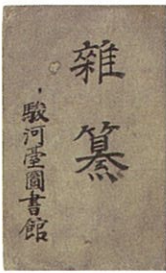 雜纂
駿河臺圖書館